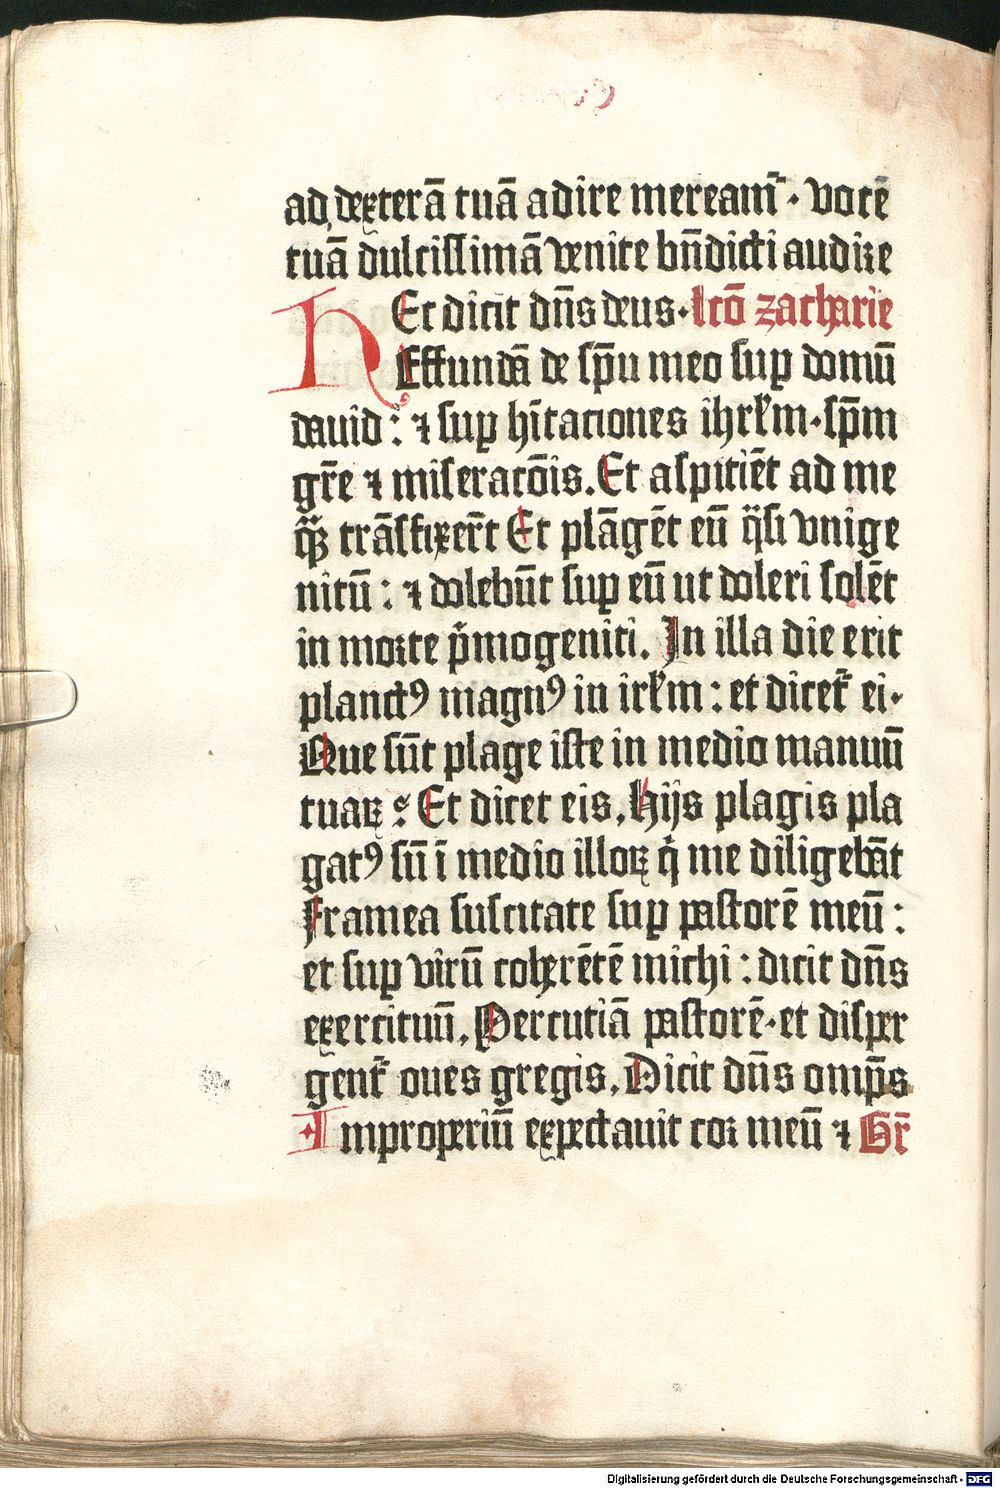 ad dexterā tuā adire meream̄ · vocē
tuā dulcissimā venite bn̄dicti audire
HEc dicit dn̄s deus · lcō zacharie
Effundā de sp̄u meo suꝑ domū
dauid : ⁊ suꝑ hītaciones ihrl̄m · sp̄m
gr̄e ⁊ miseracōis. Et aspitiēt ad me
quē trāsfixer̄t Et plāgēt eū q̄si vnige
nitū : ⁊ dolebūt suꝑ eū ut doleri solēt
in morte p̄mogeniti. In illa die erit
planctꝰ magnꝰ in irl̄m : et dicet̄ ei ·
Que sūt plage iste in medio manuū
tuaꝝ ? Et dicet eis, Hijs plagis pla
gatꝰ sū ī medio illoꝝ q̄ me diligebāt
Framea suscitate suꝑ pastorē meū :
et suꝑ virū coherētē michi : dicit dn̄s
exercituū, Percutiā pastorē · et disper
gent̄ oues gregis, Dicit dn̄s omp̄s
Improperiū expectauit cor meū ⁊ Gr̄
Digitalisierung gefördert durch die Deutsche Forschungsgemeinschaft - DFG